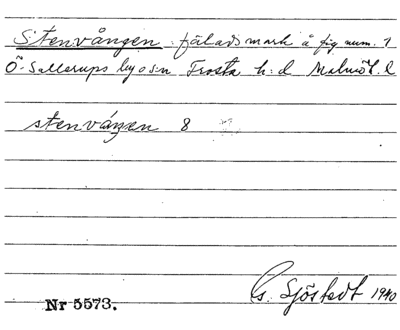 Stenvången fäladsmark å fig num. 1
Ö. Sallerups by o s:n Frosta h:d Malmöh. l
stenvången 8
G. Sjöstedt 1940
Nr 5573.